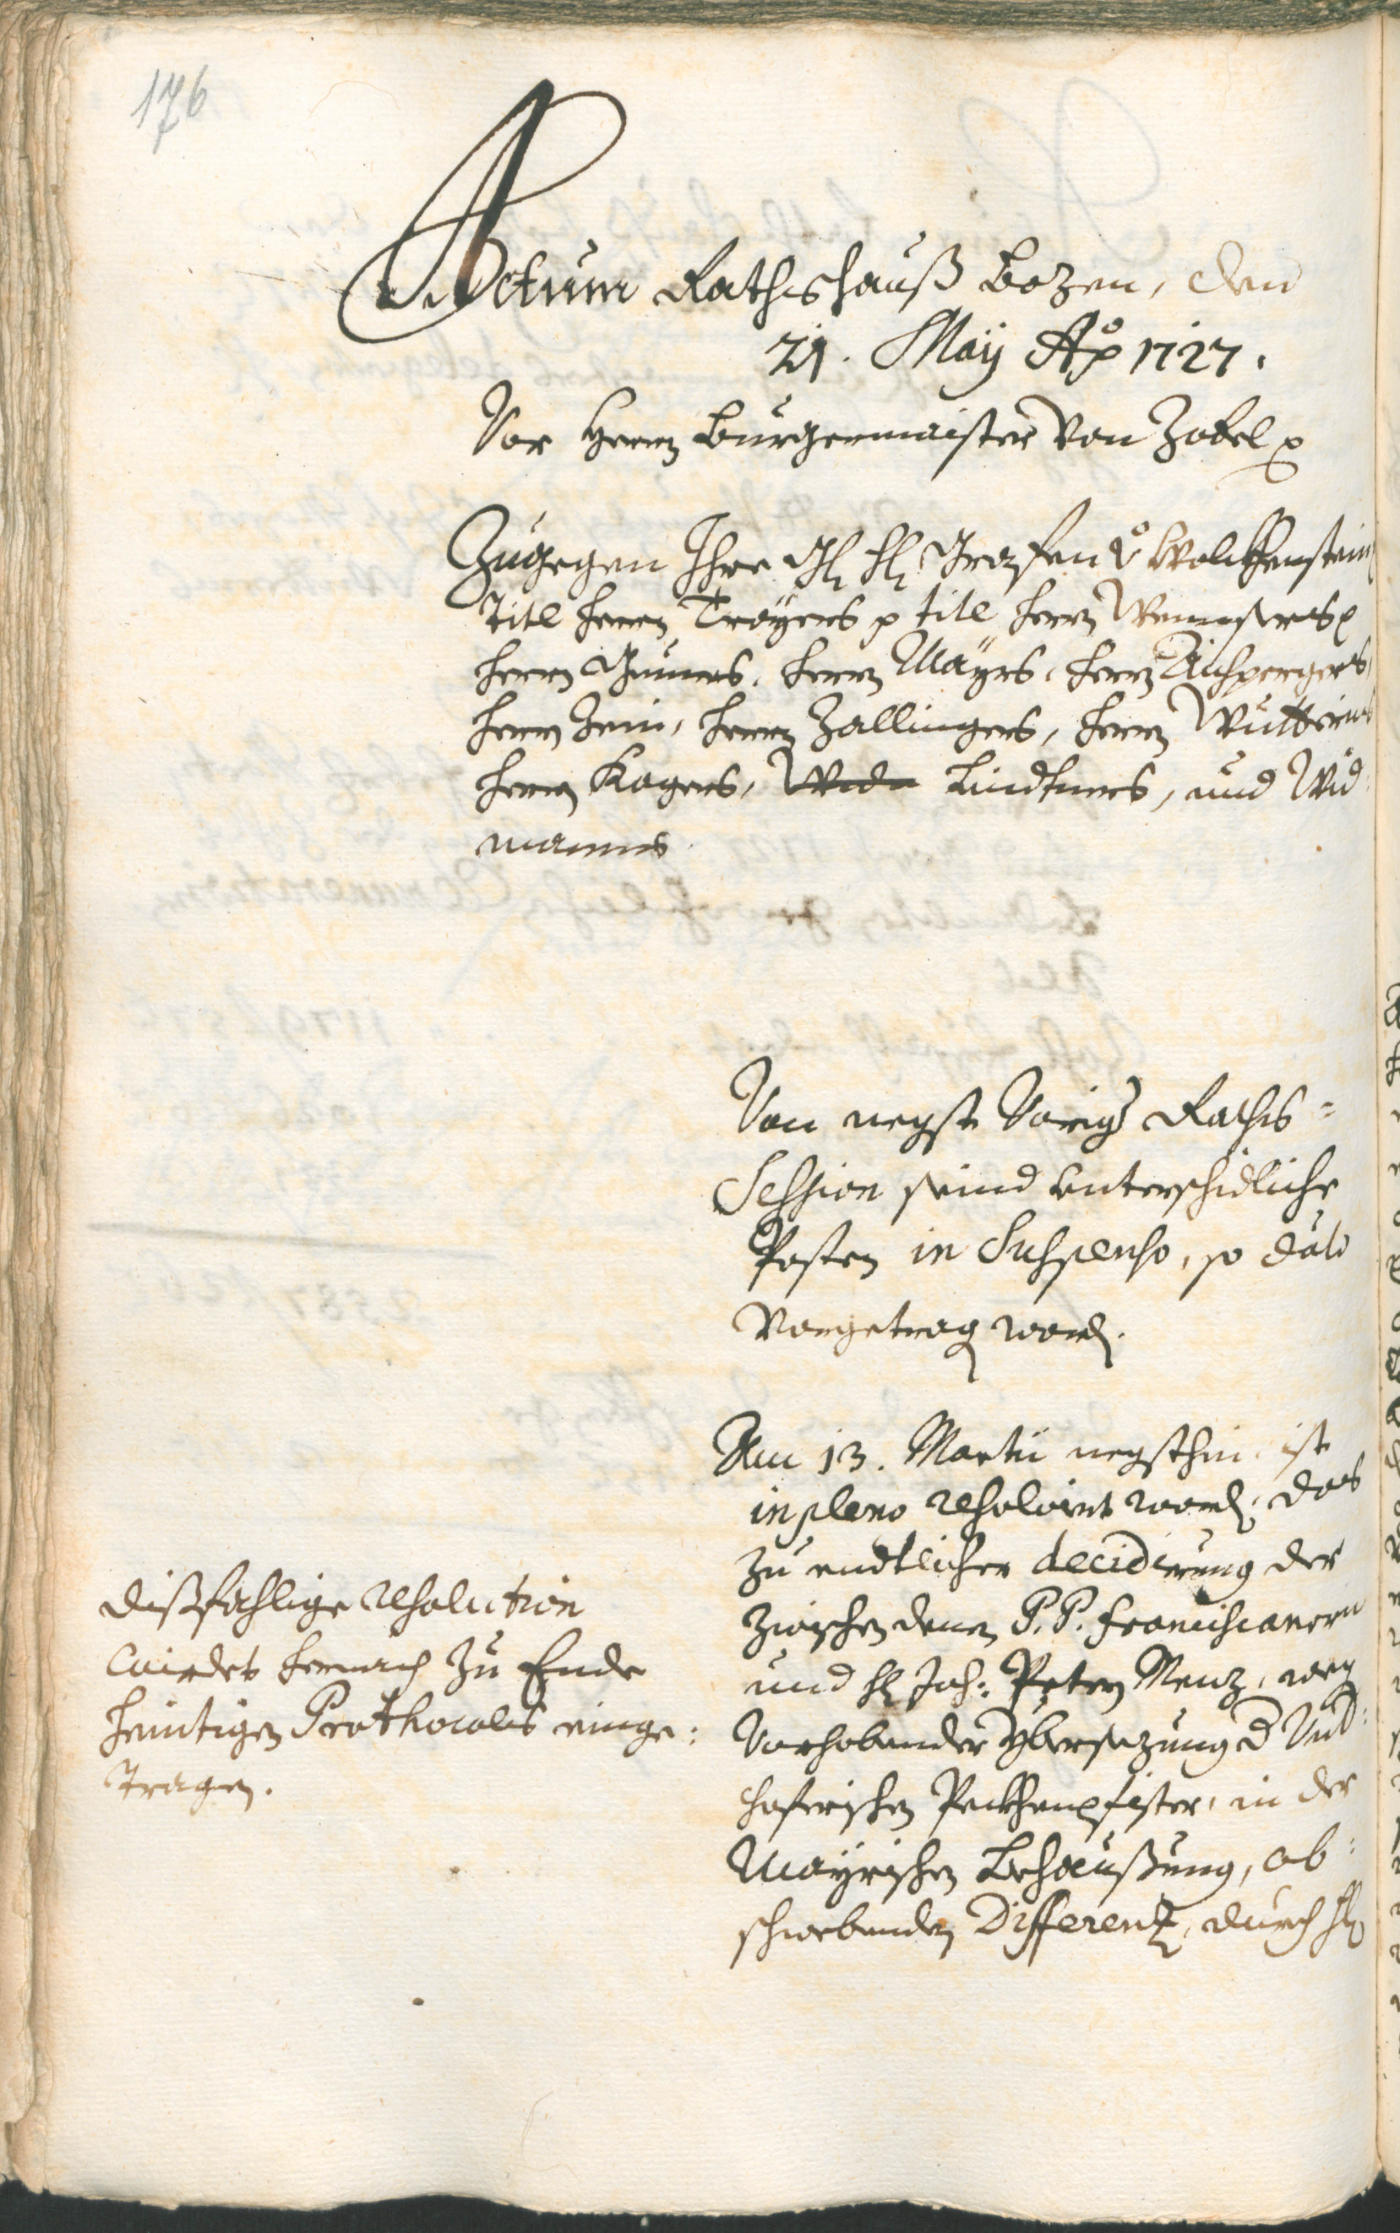 176
Actum Rathshauß Bozen, den
21. Maÿ Ao 1727.
Vor Herrn Burgermaister Von Zobel p
Zugegen Ihro Gl Hl Grafen v Wolkhenstein
Titl Herrn Troÿers p titl Herrn
Herrn Gumers, Herrn Maÿrs, Herrn Aichpergers,
Herrn Zein, Herrn Zallingers, Herrn
Herrn Kagers, Lindtners, und Wid:
manns
Von negst Vorig Raths=
Session seind unterschidliche
Posten in Suspenso, so
Vorgetrag word.
Am 13. Martii negsthin ist
in pleno resolvirt word, das
zu endtlicher decidierung der
zwischen denen P. P. Franciscanern
und Hl Joh: Petern Menz, weg
Vorhabender Ybersezung d
hoferischen Peckhenpfister, in der
Maÿrischen Behaußung, ob:
schwebenden Differenz, durch Hl
dißfahlige resolution
wirdet hernach zu Ende
heintigen Prothocolls einge:
tragen.